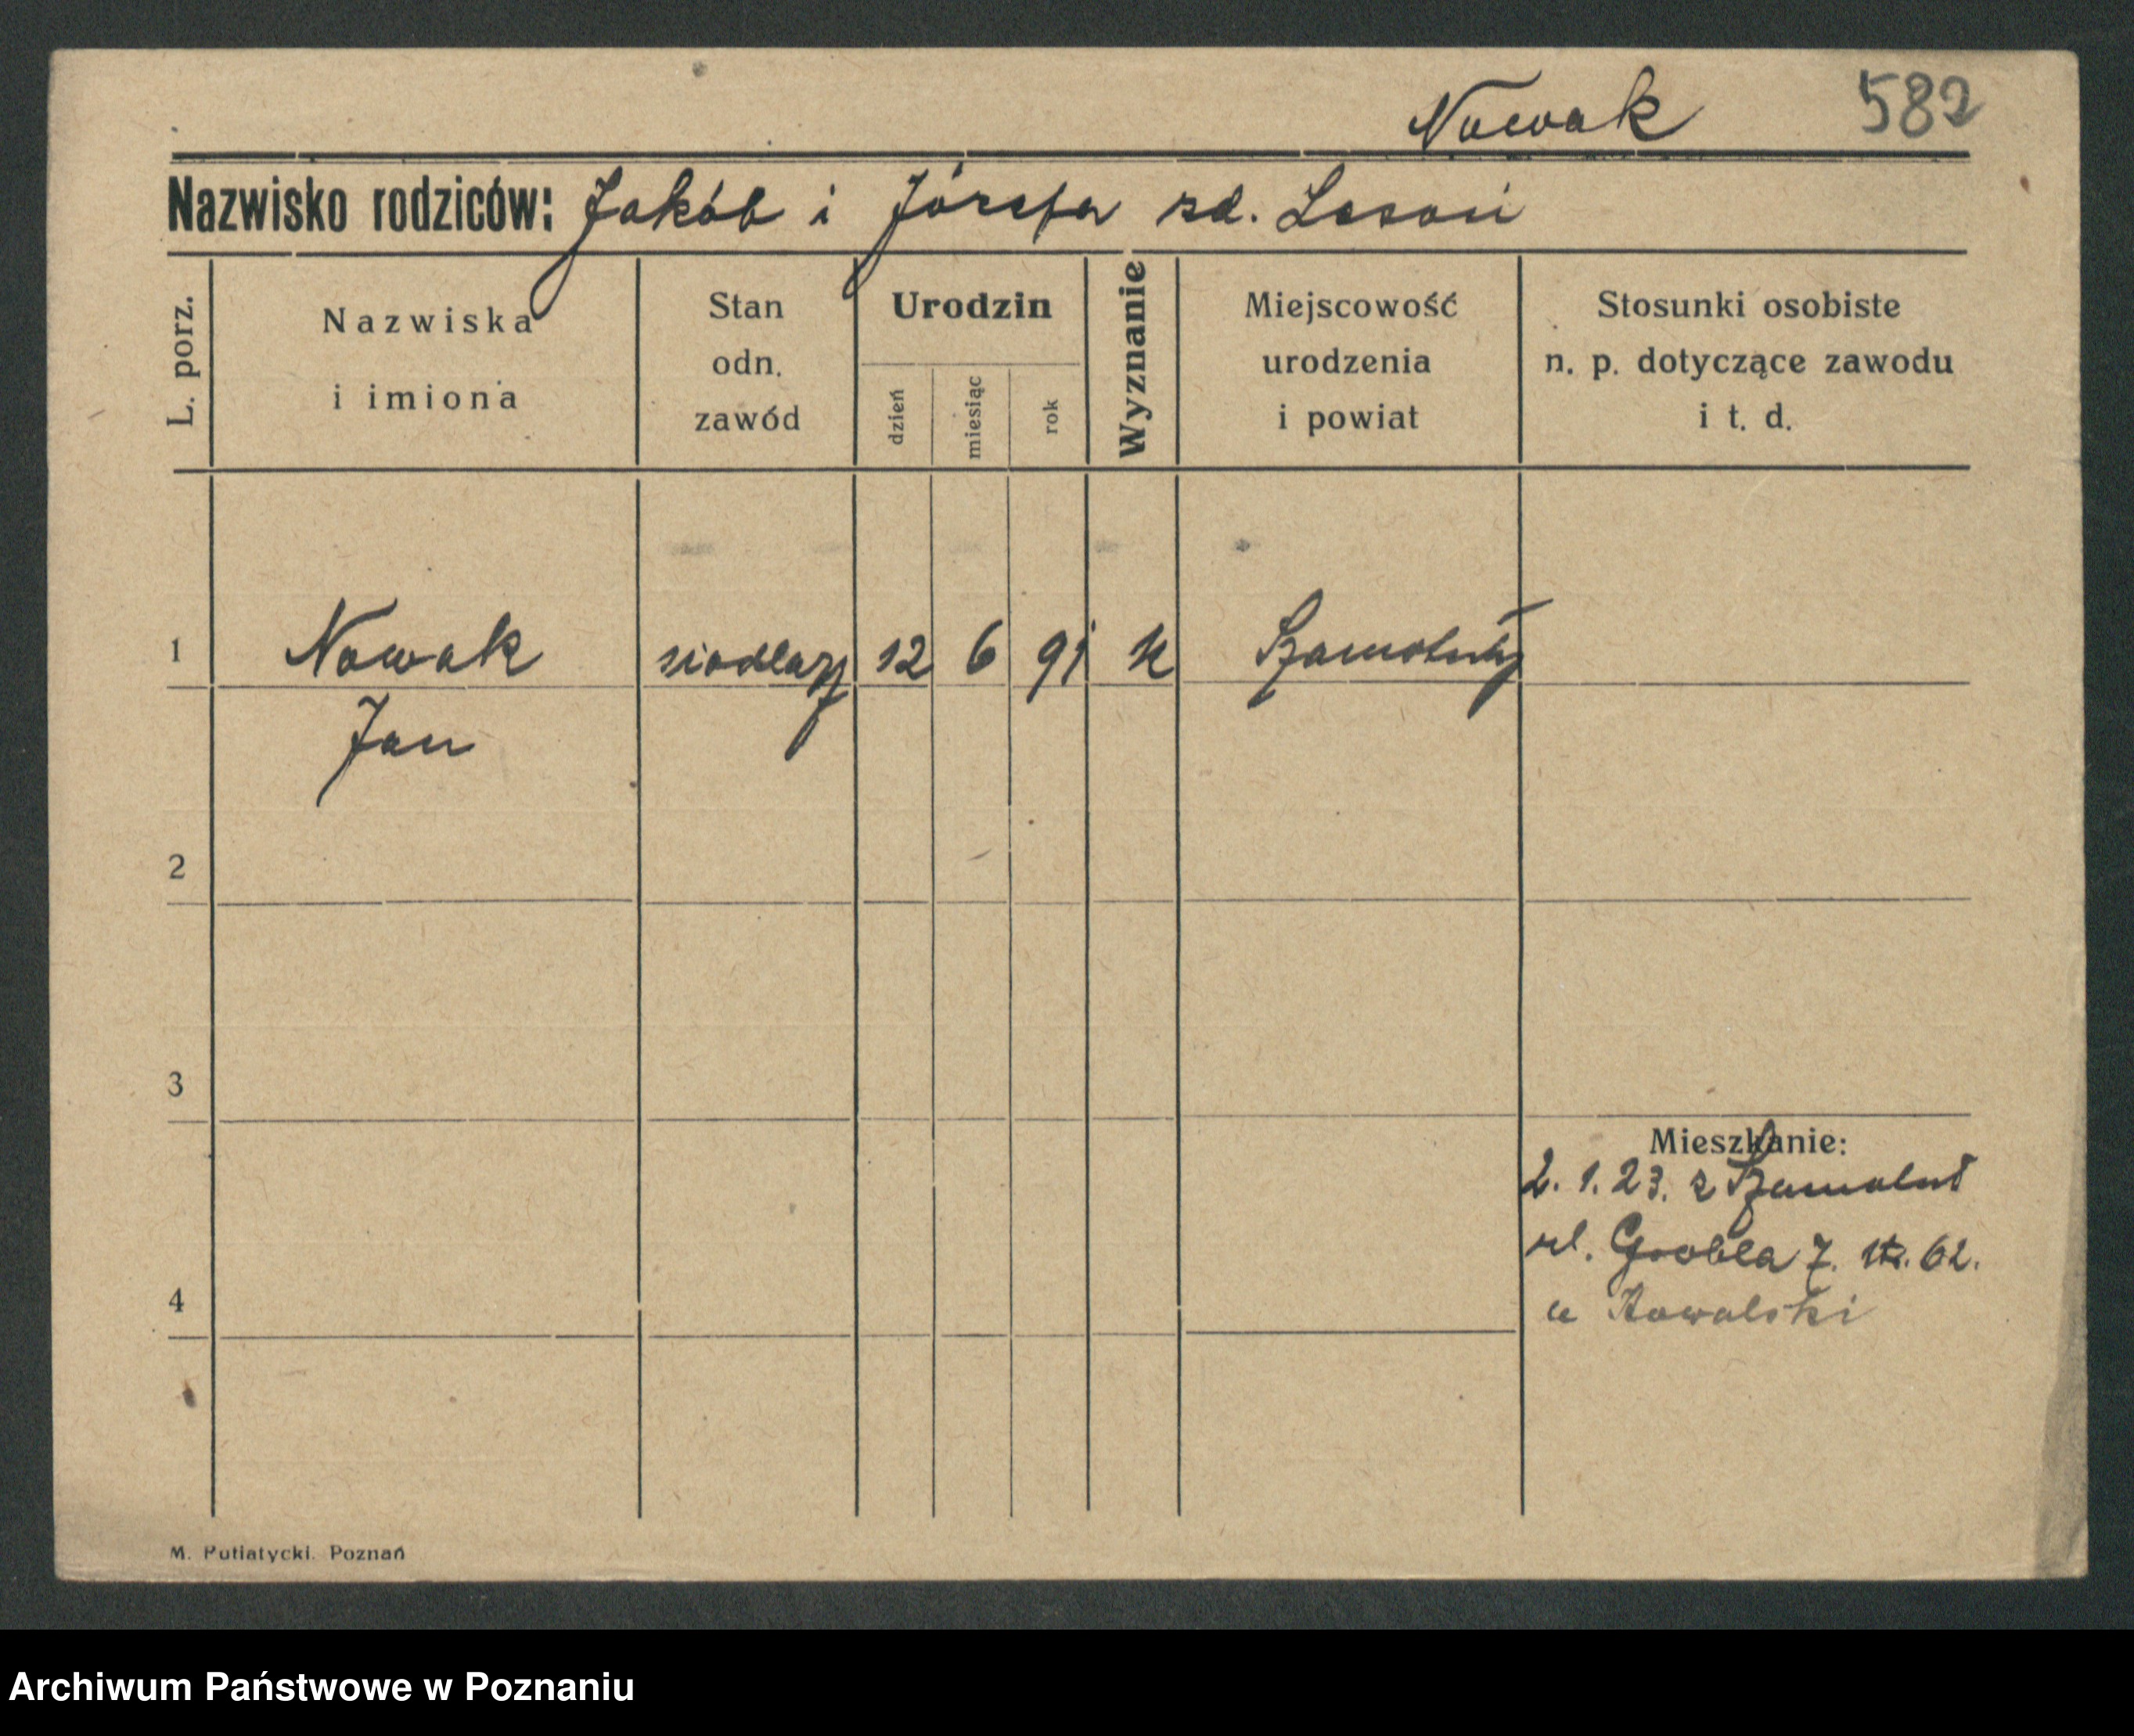 Nowak 582
Nazwisko rodziców: Jakób i Józefa zd. Lesoń
L. porz.
Nazwiska i imiona
Stan odn. zawód
Urodzin
dzień miesiąc rok
Wyznanie
Miejscowość urodzenia i powiat
Stosunki osobiste n. p. dotyczące zawodu i t. d.
1 Nowak siodlarz 12 6 91 k Szamotuły
Jan
2
3
Mieszkanie:
2. 1. 23. z Szamotuł
ul. Grobla 7. 62.
4
u Kowalski
M. Putiatycki. Poznań
Archiwum Państwowe w Poznaniu